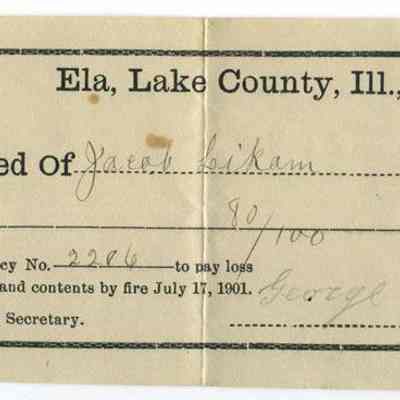 Ela, Lake County, Ill.,
ed Of Jacob Likam
80/100
cy No. 2206 to pay loss
and contents by fire July 17, 1901. George
Secretary.